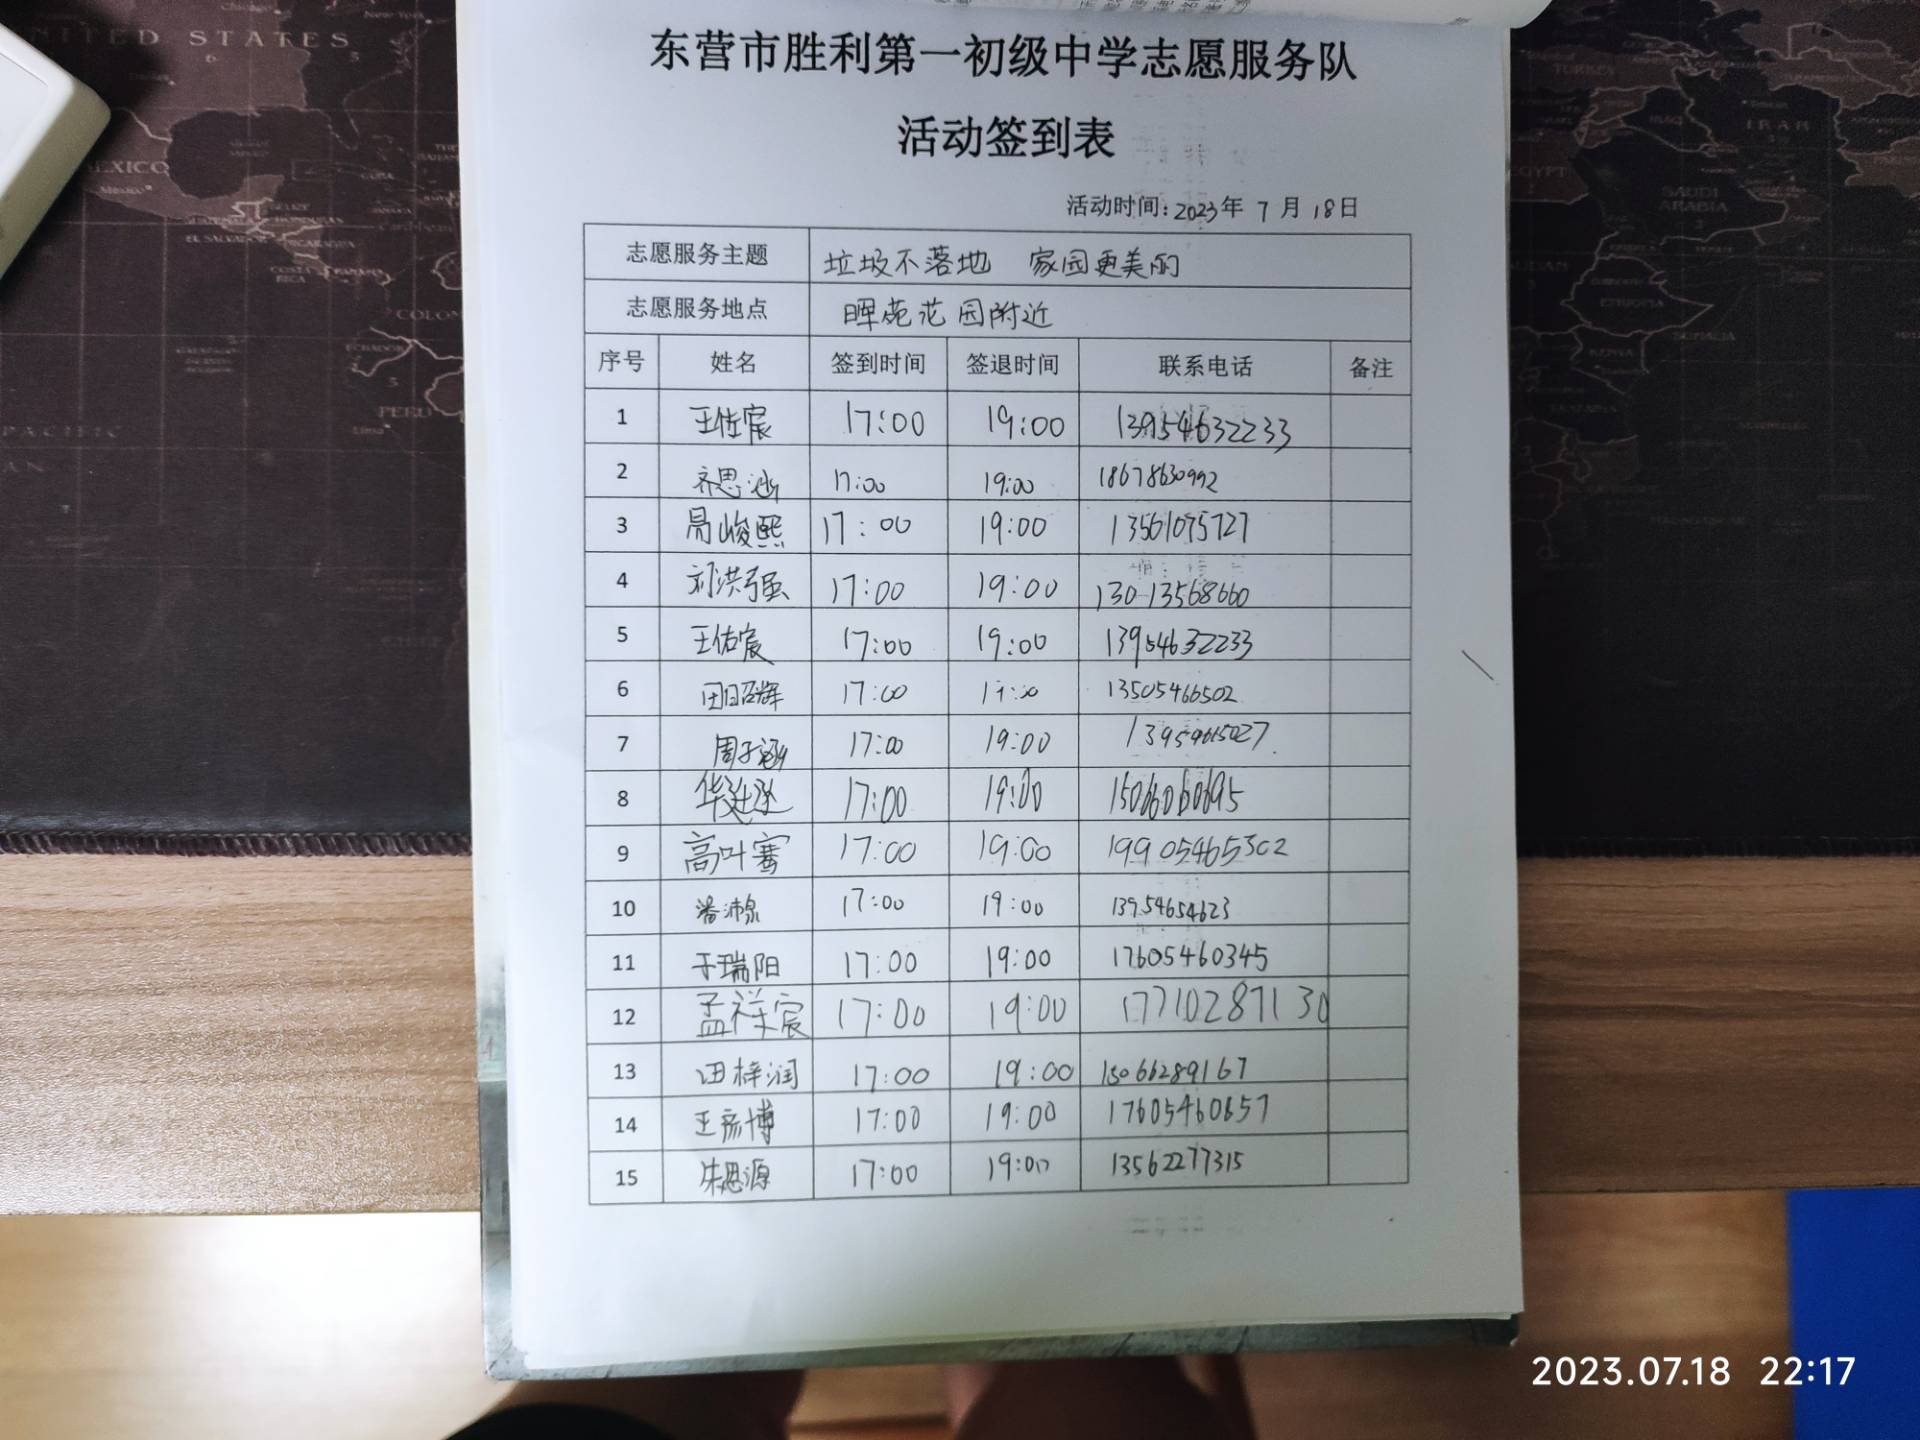 UNITED STATES
MEXICO
东营市胜利第一初级中学志愿服务队
活动签到表
活动时间:2023年 7 月 18日
志愿服务主题 垃圾不落地 家园更美丽
志愿服务地点 晖苑花园附近
序号 姓名 签到时间 签退时间 联系电话 备注
1 王佳宸 17:00 19:00 13954632233
2 齐思涵 17:00 19:00 18678630992
3 昌峻熙 17:00 19:00 13561075727
4 刘洪强 17:00 19:00 13013568660
5 王佑宸 17:00 19:00 13954632233
6 田昭辉 17:00 13505466502
7 周子涵 17:00 19:00
8 17:00 19:00 15066060695
9 高叶骞 17:00 19:00 19905465302
10 潘沛泉 17:00 19:00 13954654623
11 于瑞阳 17:00 19:00 17605460345
12 孟祥宸 17:00 19:00 17710287130
13 田梓润 17:00 19:00 15066289167
14 王彦博 17:00 19:00 17605460657
15 朱思源 17:00 19:00 13562277315
IRAN
SAUDI
ARABIA
ETHIOPIA
PERU
2023.07.18 22:17